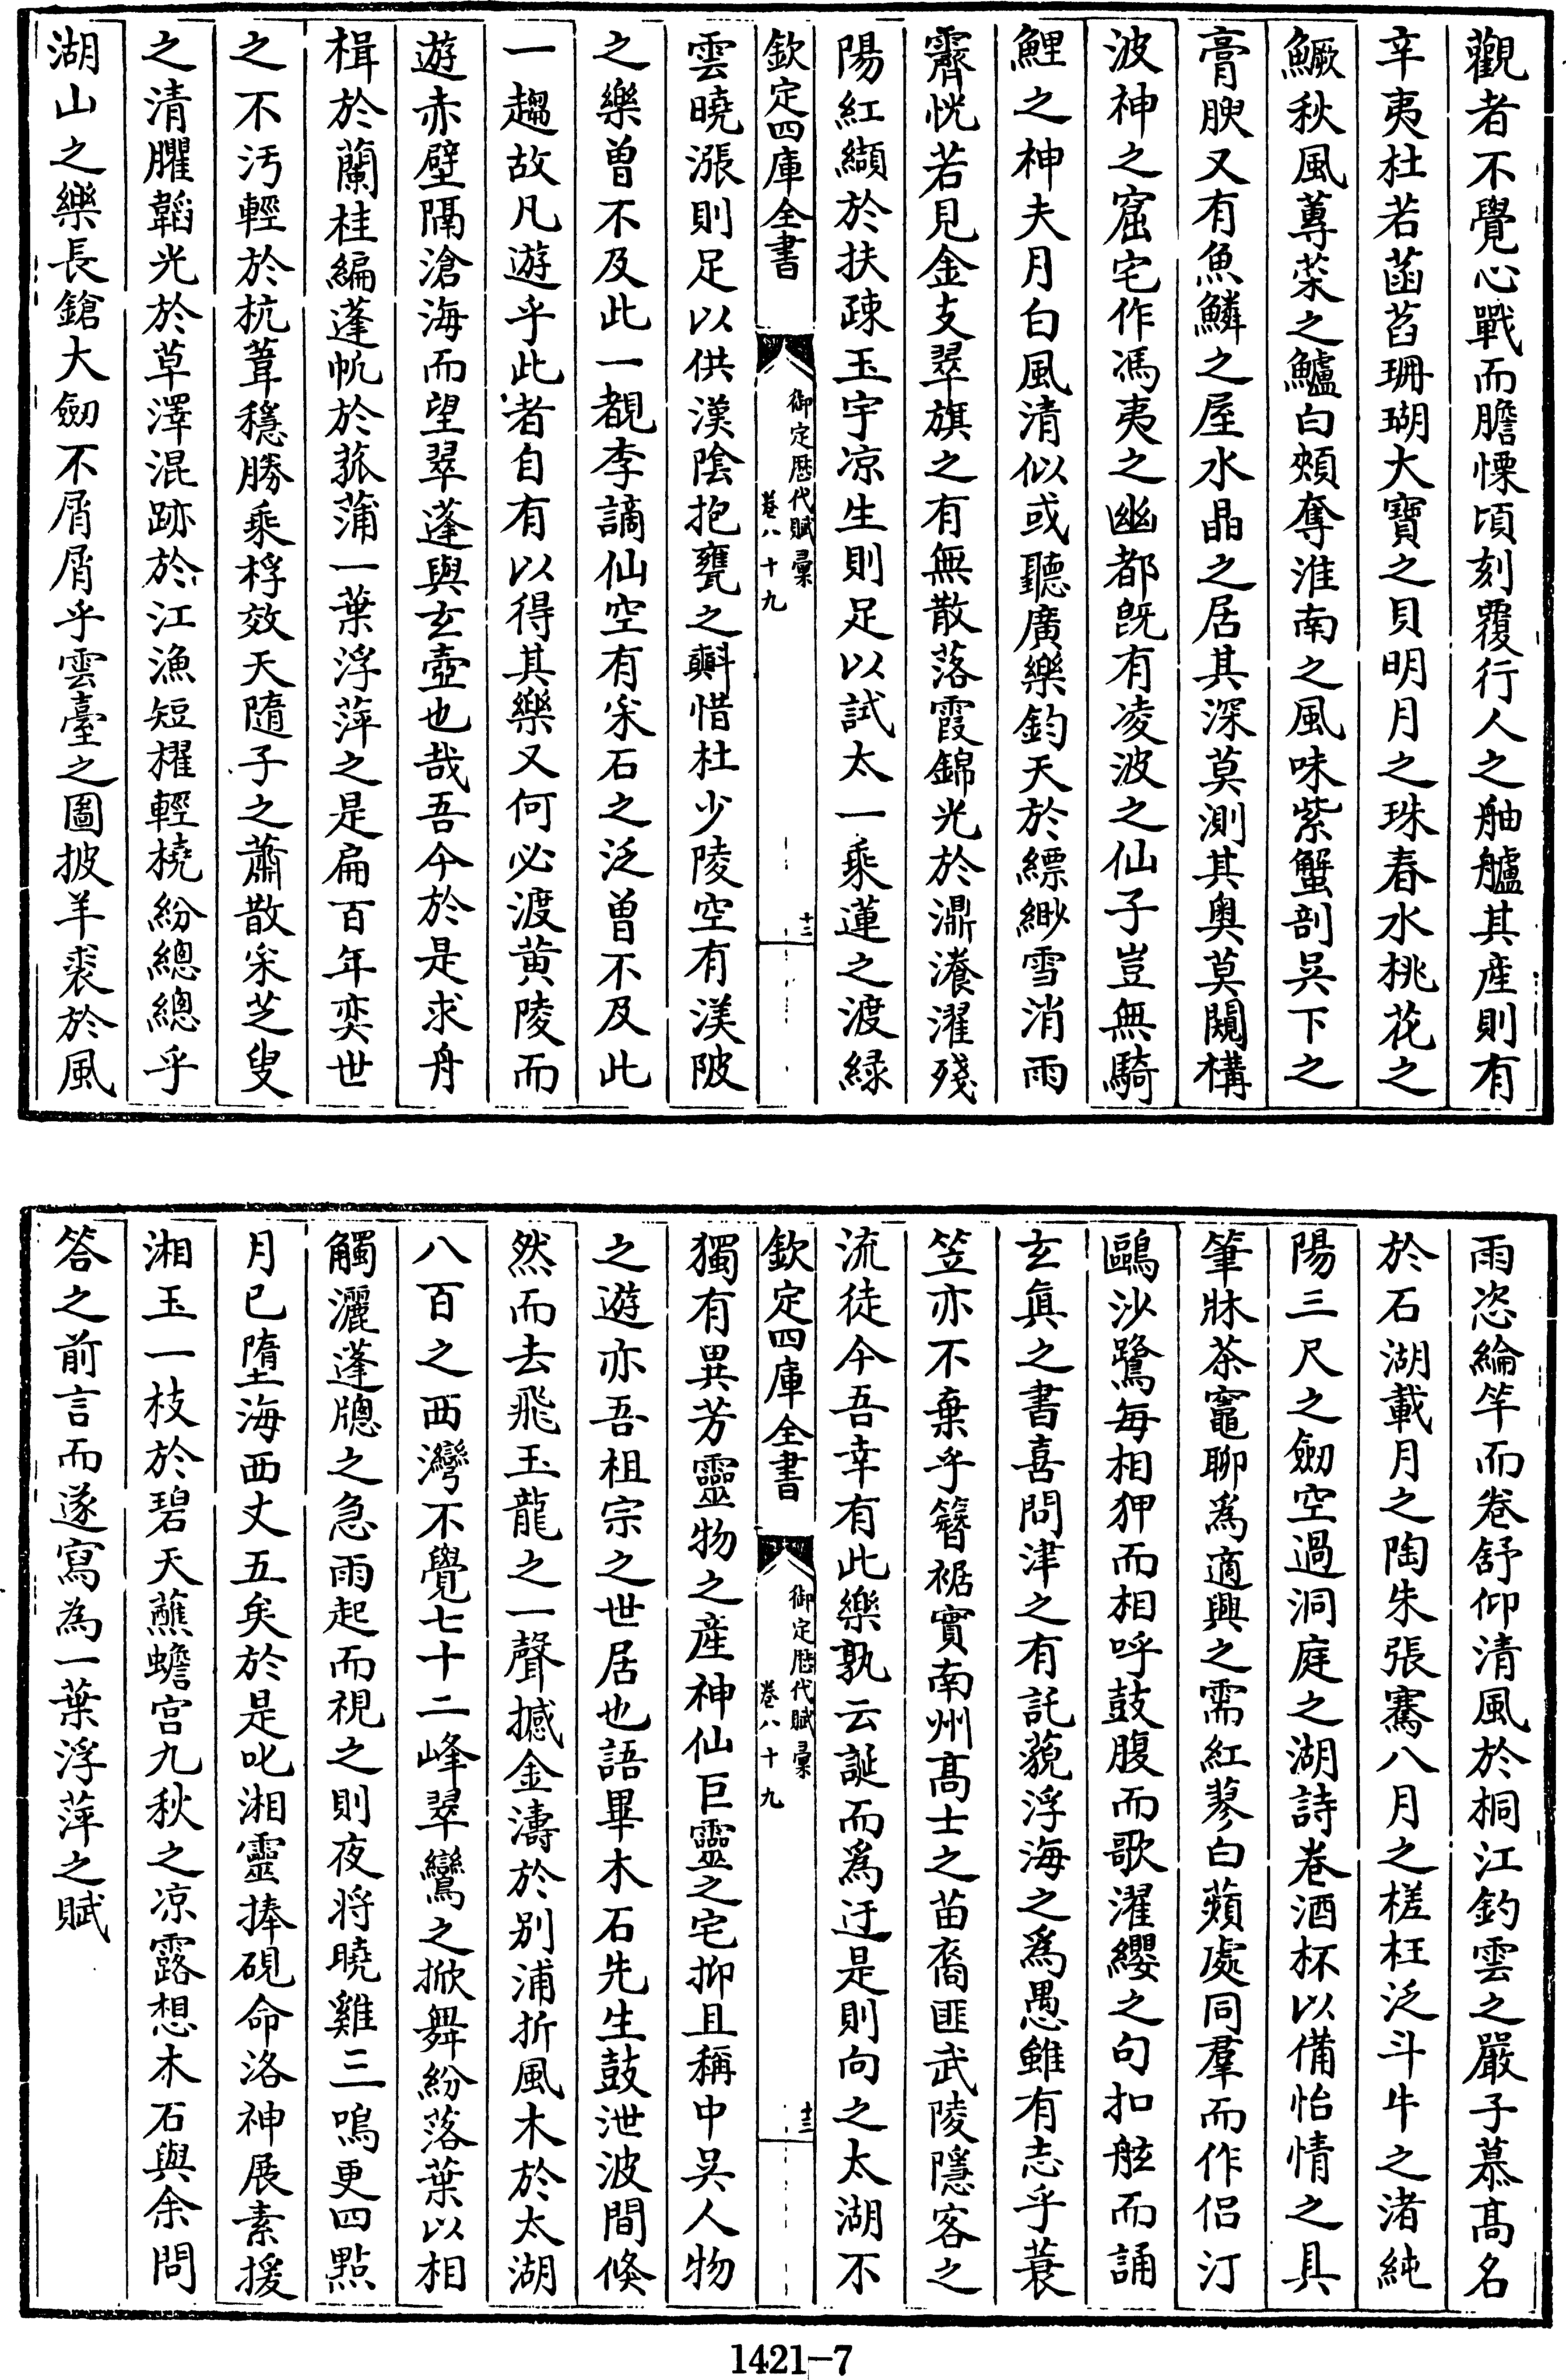 觀者不覺心戰而膽慄頃刻覆行人之舳艫其産則有
辛夷杜若菡萏珊瑚大寶之貝明月之珠春水桃花之
鱖秋風蓴菜之鱸白頰奪淮南之風味紫蟹剖吳下之
膏腴又有魚鱗之屋水晶之居其深莫測其奥莫闚構
波神之窟宅作馮夷之幽都旣有凌波之仙子豈無騎
鯉之神夫月白風清似或聽廣樂鈞天於縹緲雪消雨
霽恍若見金支翠旗之有無散落霞錦光於㶂瀁濯殘
陽紅纈於扶疎玉宇凉生則足以試太一乘蓮之渡緑
欽定四庫全書
御定歴代賦彙
卷八十九
十二
雲曉漲則足以供漢陰抱甕之㪺惜杜少陵空有渼陂
之樂曾不及此一覩李謫仙空有采石之泛曾不及此
一趨故凡遊乎此者自有以得其樂又何必渡黄陵而
遊赤壁隔滄海而望翠蓬與玄壺也哉吾今於是求舟
楫於蘭桂編蓬帆於菰蒲一葉浮萍之是扁百年奕世
之不汚輕於杭葦穩勝乘桴效天隨子之蕭散采芝叟
之清臞韜光於草澤混跡於江漁短櫂輕橈紛總總乎
湖山之樂長鎗大劒不屑屑乎雲臺之圖披羊裘於風
雨恣綸竿而卷舒仰清風於桐江釣雲之嚴子慕髙名
於石湖載月之陶朱張騫八月之槎枉泛斗牛之渚純
陽三尺之劒空過洞庭之湖詩卷酒杯以備怡情之具
筆牀茶竈聊爲適興之需紅蓼白蘋處同羣而作侣汀
鷗沙鷺每相狎而相呼鼓腹而歌濯纓之句扣舷而誦
玄真之書喜問津之有託藐浮海之爲愚雖有志乎蓑
笠亦不棄乎簪裾實南州髙士之苗裔匪武陵隱客之
流徒今吾幸有此樂孰云誕而爲迂是則向之太湖不
欽定四庫全書
御定歴代賦彙
卷八十九
十三
獨有異芳靈物之産神仙巨靈之宅抑且稱中吳人物
之遊亦吾祖宗之世居也語畢木石先生鼓泄波間倏
然而去飛玉龍之一聲撼金濤於别浦折風木於太湖
八百之西灣不覺七十二峰翠鸞之掀舞紛落葉以相
觸灑蓬牕之急雨起而視之則夜将曉雞三鳴更四點
月已墮海西丈五矣於是叱湘靈捧硯命洛神展素援
湘玉一枝於碧天蘸蟾宫九秋之凉露想木石與余問
答之前言而遂寫為一葉浮萍之賦
1421-7